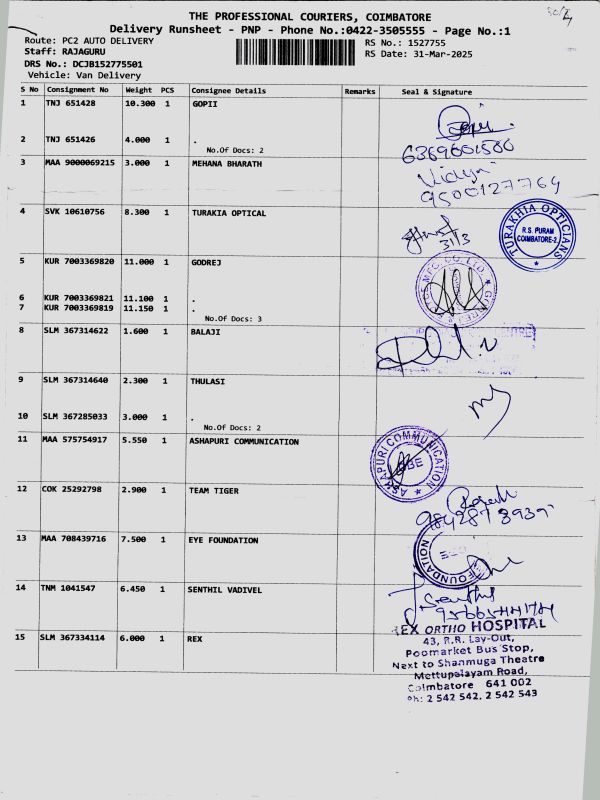 THE PROFESSIONAL COURIERS, COIMBATORE
Delivery Runsheet - PNP - Phone No.:0422-3505555 - Page No.:1
Route: PC2 AUTO DELIVERY
RS No.: 1527755
Staff: RAJAGURU
RS Date: 31-Mar-2025
DRS No.: DCJB152775501
Vehicle: Van Delivery
S No Consignment No Weight PCS Consignee Details Remarks Seal & Signature
1 TNJ 651428 10.300 1 GOPII
Gopi
2 TNJ 651426 4.000 1 .
No.Of Docs: 2
6369601580
3 MAA 9000069215 3.000 1 MEHANA BHARATH
Vidya
9500127764
4 SVK 10610756 8.300 1 TURAKIA OPTICAL
TURAKHIA OPTICIANS
R.S. PURAM
COIMBATORE-2
31/3
5 KUR 7003369820 11.000 1 GODREJ
6 KUR 7003369821 11.100 1 .
7 KUR 7003369819 11.150 1 .
No.Of Docs: 3
8 SLM 367314622 1.600 1 BALAJI
9 SLM 367314640 2.300 1 THULASI
10 SLM 367285033 3.000 1 .
No.Of Docs: 2
11 MAA 575754917 5.550 1 ASHAPURI COMMUNICATION
ASHAPURI COMMUNICATION
CBE
12 COK 25292798 2.900 1 TEAM TIGER
13 MAA 708439716 7.500 1 EYE FOUNDATION
FOUNDATION
14 TNM 1041547 6.450 1 SENTHIL VADIVEL
Senthil
15 SLM 367334114 6.000 1 REX
REX ORTHO HOSPITAL
43, R.R. Lay-Out,
Poomarket Bus Stop,
Next to Shanmuga Theatre
Mettupalayam Road,
Coimbatore 641 002
Ph: 2 542 542, 2 542 543